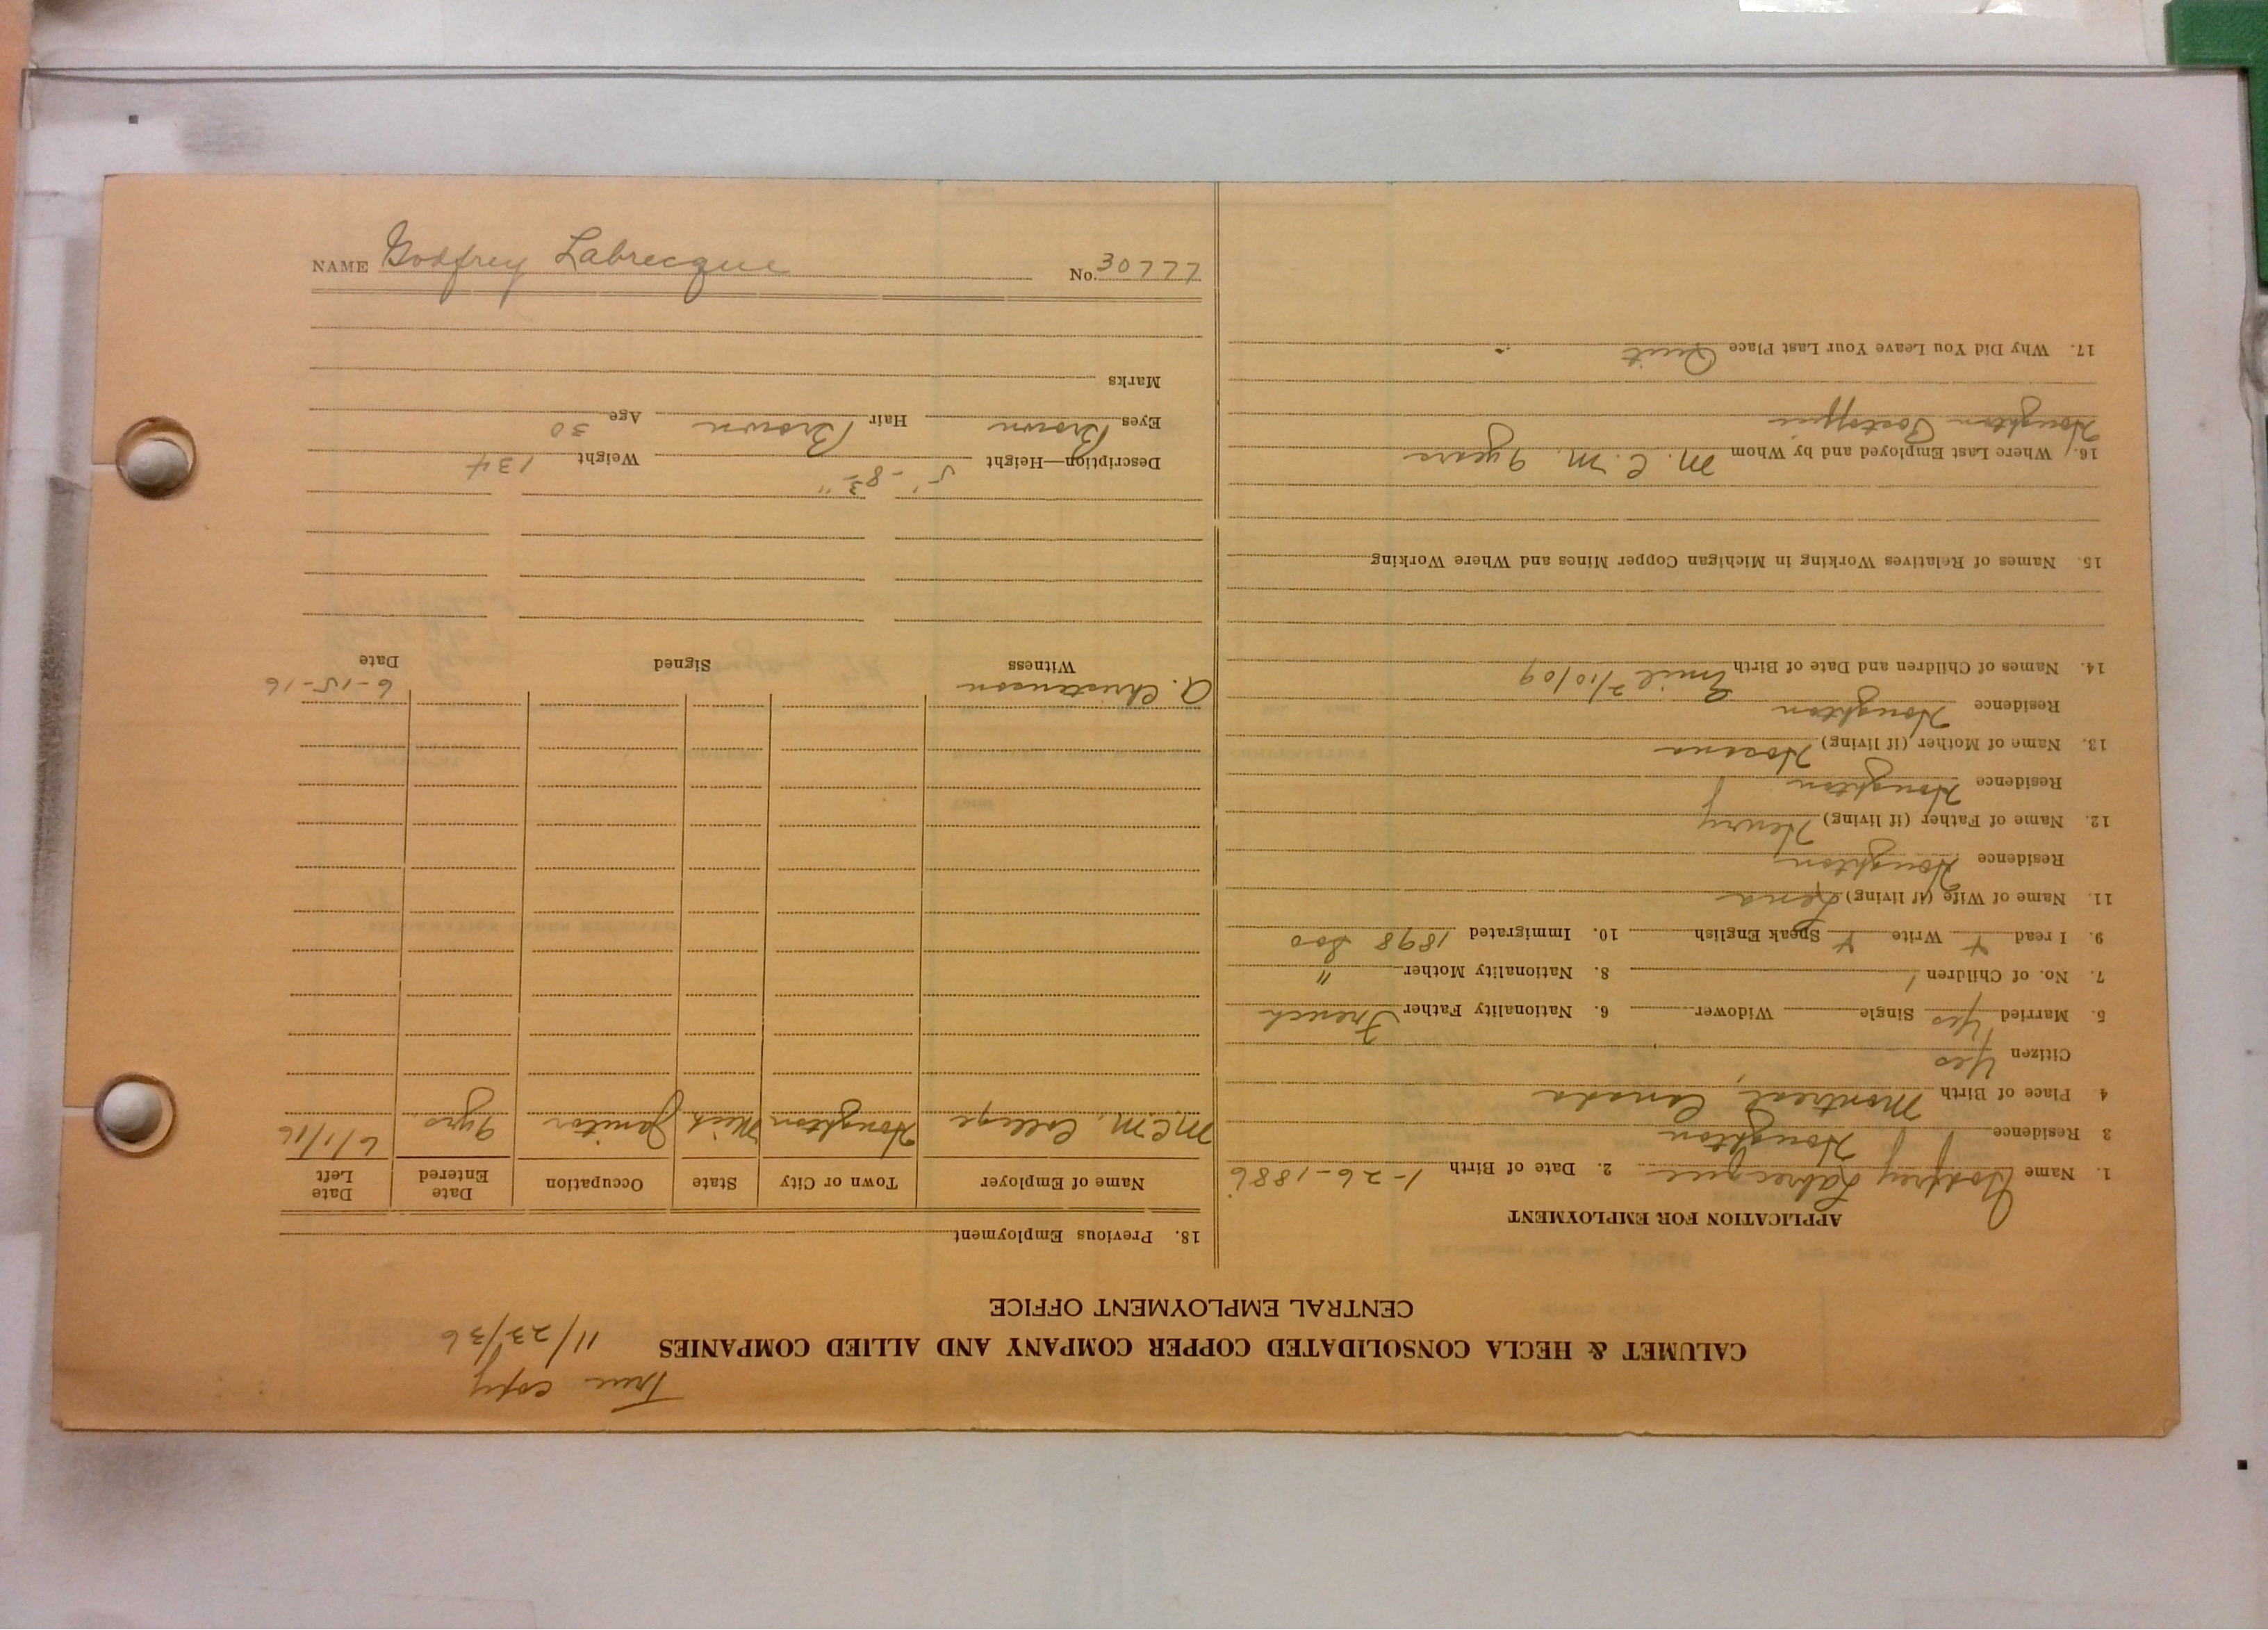 True copy
11/23/36
CALUMET & HECLA CONSOLIDATED COPPER COMPANY AND ALLIED COMPANIES
CENTRAL EMPLOYMENT OFFICE
APPLICATION FOR EMPLOYMENT
1. Name Godfrey Labrecque 2. Date of Birth 1-26-1886
3 Residence Houghton
4 Place of Birth Montreal, Canada
Citizen Yes
5. Married Yes Single Widower 6. Nationality Father French
7. No. of Children 1 8. Nationality Mother "
9. I read + Write + Speak English 10. Immigrated 1898 Soo
11. Name of Wife (if living) Lena
Residence Houghton
12. Name of Father (if living) Henry
Residence Houghton
13. Name of Mother (if living)
Residence Houghton
14. Names of Children and Date of Birth Emil 2/10/09
15. Names of Relatives Working in Michigan Copper Mines and Where Working
16. Where Last Employed and by Whom M. C. M. 9 years
Houghton Postoffice
17. Why Did You Leave Your Last Place Quit
18. Previous Employment
Name of Employer Town or City State Occupation Date Entered Date Left
M.C.M. College Houghton Mich Janitor 9 yrs 6/1/16
A. Christenson 6-15-16
Witness Signed Date
Description—Height 5'-8 3/4" Weight 134
Eyes Brown Hair Brown Age 30
Marks
NAME Godfrey Labrecque No. 30777